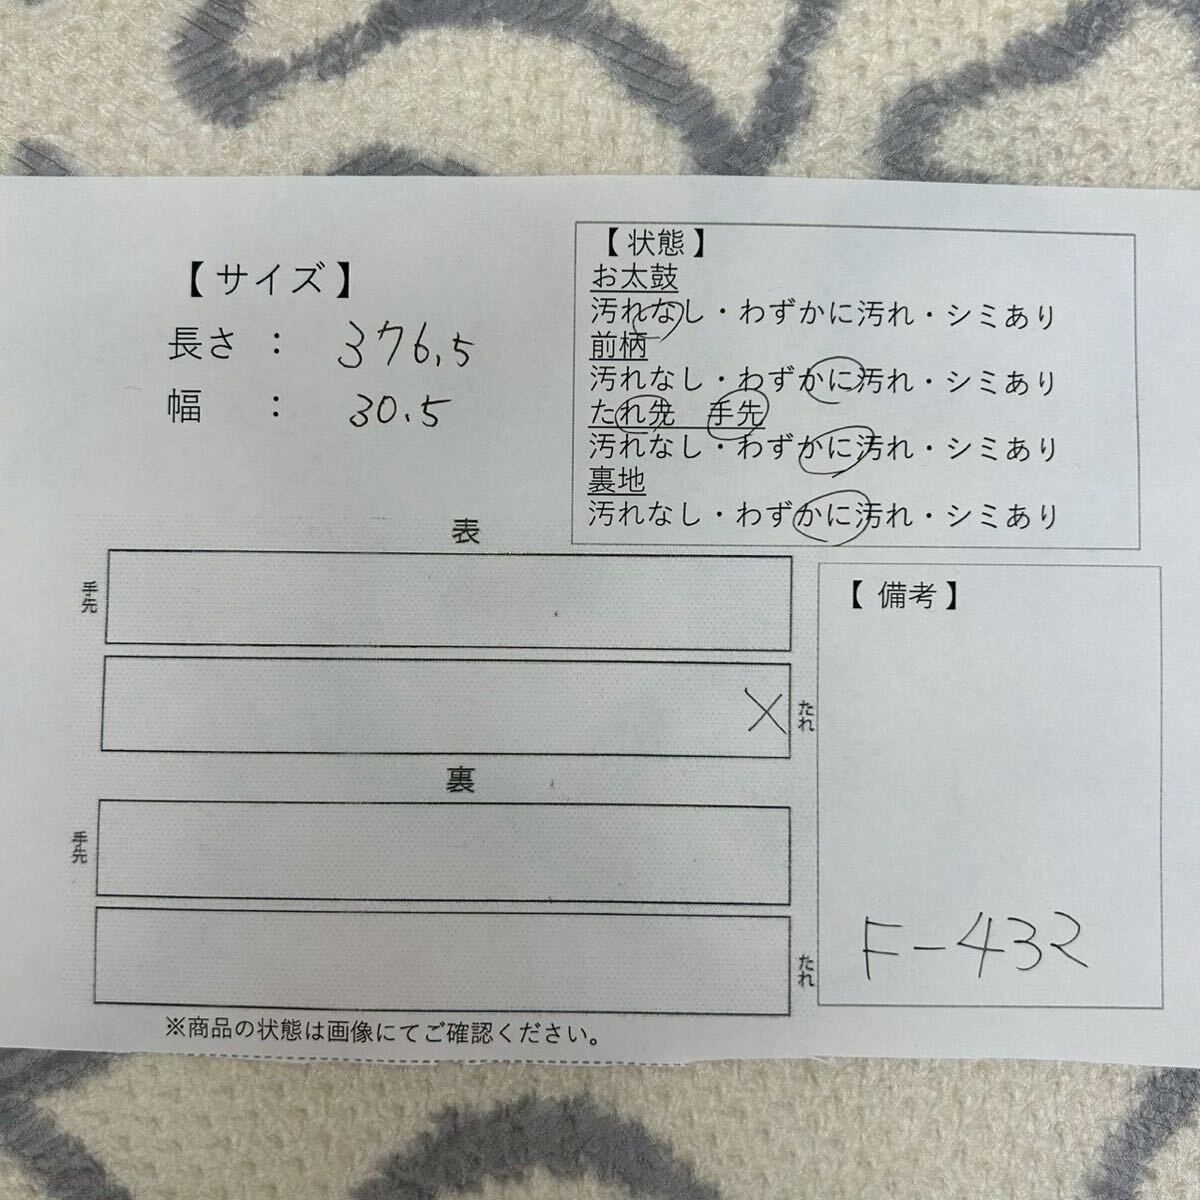 【サイズ】
長さ ： 376.5
幅 ： 30.5
【状態】
お太鼓
汚れなし・わずかに汚れ・シミあり
前柄
汚れなし・わずかに汚れ・シミあり
たれ先 手先
汚れなし・わずかに汚れ・シミあり
裏地
汚れなし・わずかに汚れ・シミあり
表
手先
たれ
裏
手先
たれ
【備考】
F-432
※商品の状態は画像にてご確認ください。